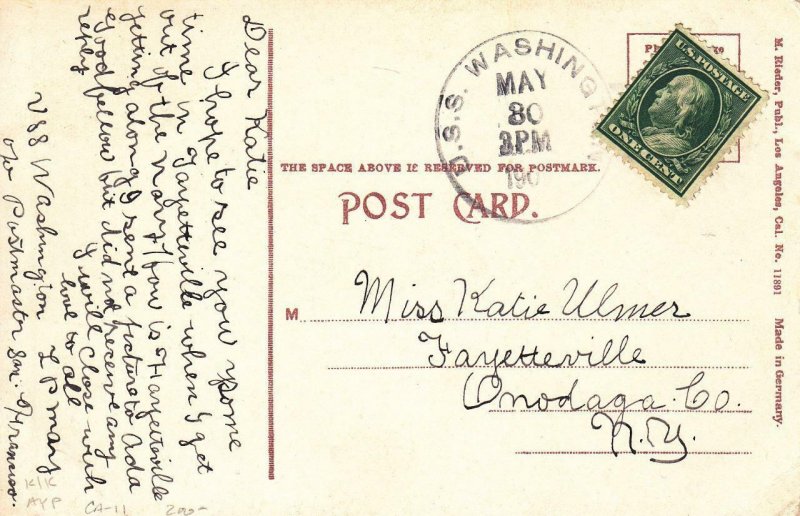 Dear Katie
I hope to see you some
time in Fayetteville when I get
out of the navy. How is Fayetteville
getting along I sent a picture to Ada
Goodfellow but did not receive any
reply I will close with
love to all
L P Mary
USS Washington
c/o Postmaster San. Francisco.
K/K
AYP CA-11 200-
U.S.S. WASHINGT
MAY
30
3 PM
190
U.S. POSTAGE
ONE CENT
THE SPACE ABOVE IS RESERVED FOR POSTMARK.
POST CARD.
M Miss Katie Ulmer
Fayetteville
Onodaga. Co.
N.Y.
M. Rieder, Publ., Los Angeles, Cal. No. 11891 Made in Germany.